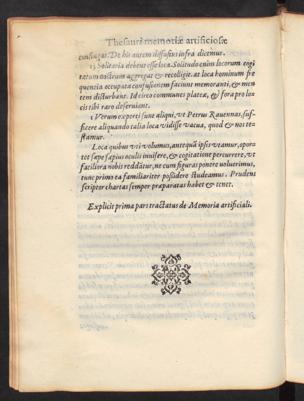 Thesauri memoriæ artificiosæ
confingat. De his autem diffusius infra dicemus.
Solitaria debent esse loca. Solitudo enim locorum cogi
tatum nostrum aggregat & recolligit. at loca hominum fre
quentia occupata confusionem faciunt memoranti, & men
tem disturbant. Id circo communes plateæ, & fora pro lo
cis tibi raro deserviant.
Verum experti sunt aliqui, vt Petrus Rauennas, suf-
ficere aliquando talia loca vidisse vacua, quod & nos te-
stamur.
Loca quibus vti volumus, antequã ipsis vtamur, opor
tet sæpe sæpius oculis inuisere, & cogitatione percurrere, vt
faciliora nobis reddãtur, ne cum figuras ponere voluerimus,
tunc primo ea familiariter possidere studeamus. Prudens
scriptor chartas semper præparatas habet & tenet.
Explicit prima pars tractatus de Memoria artificiali.